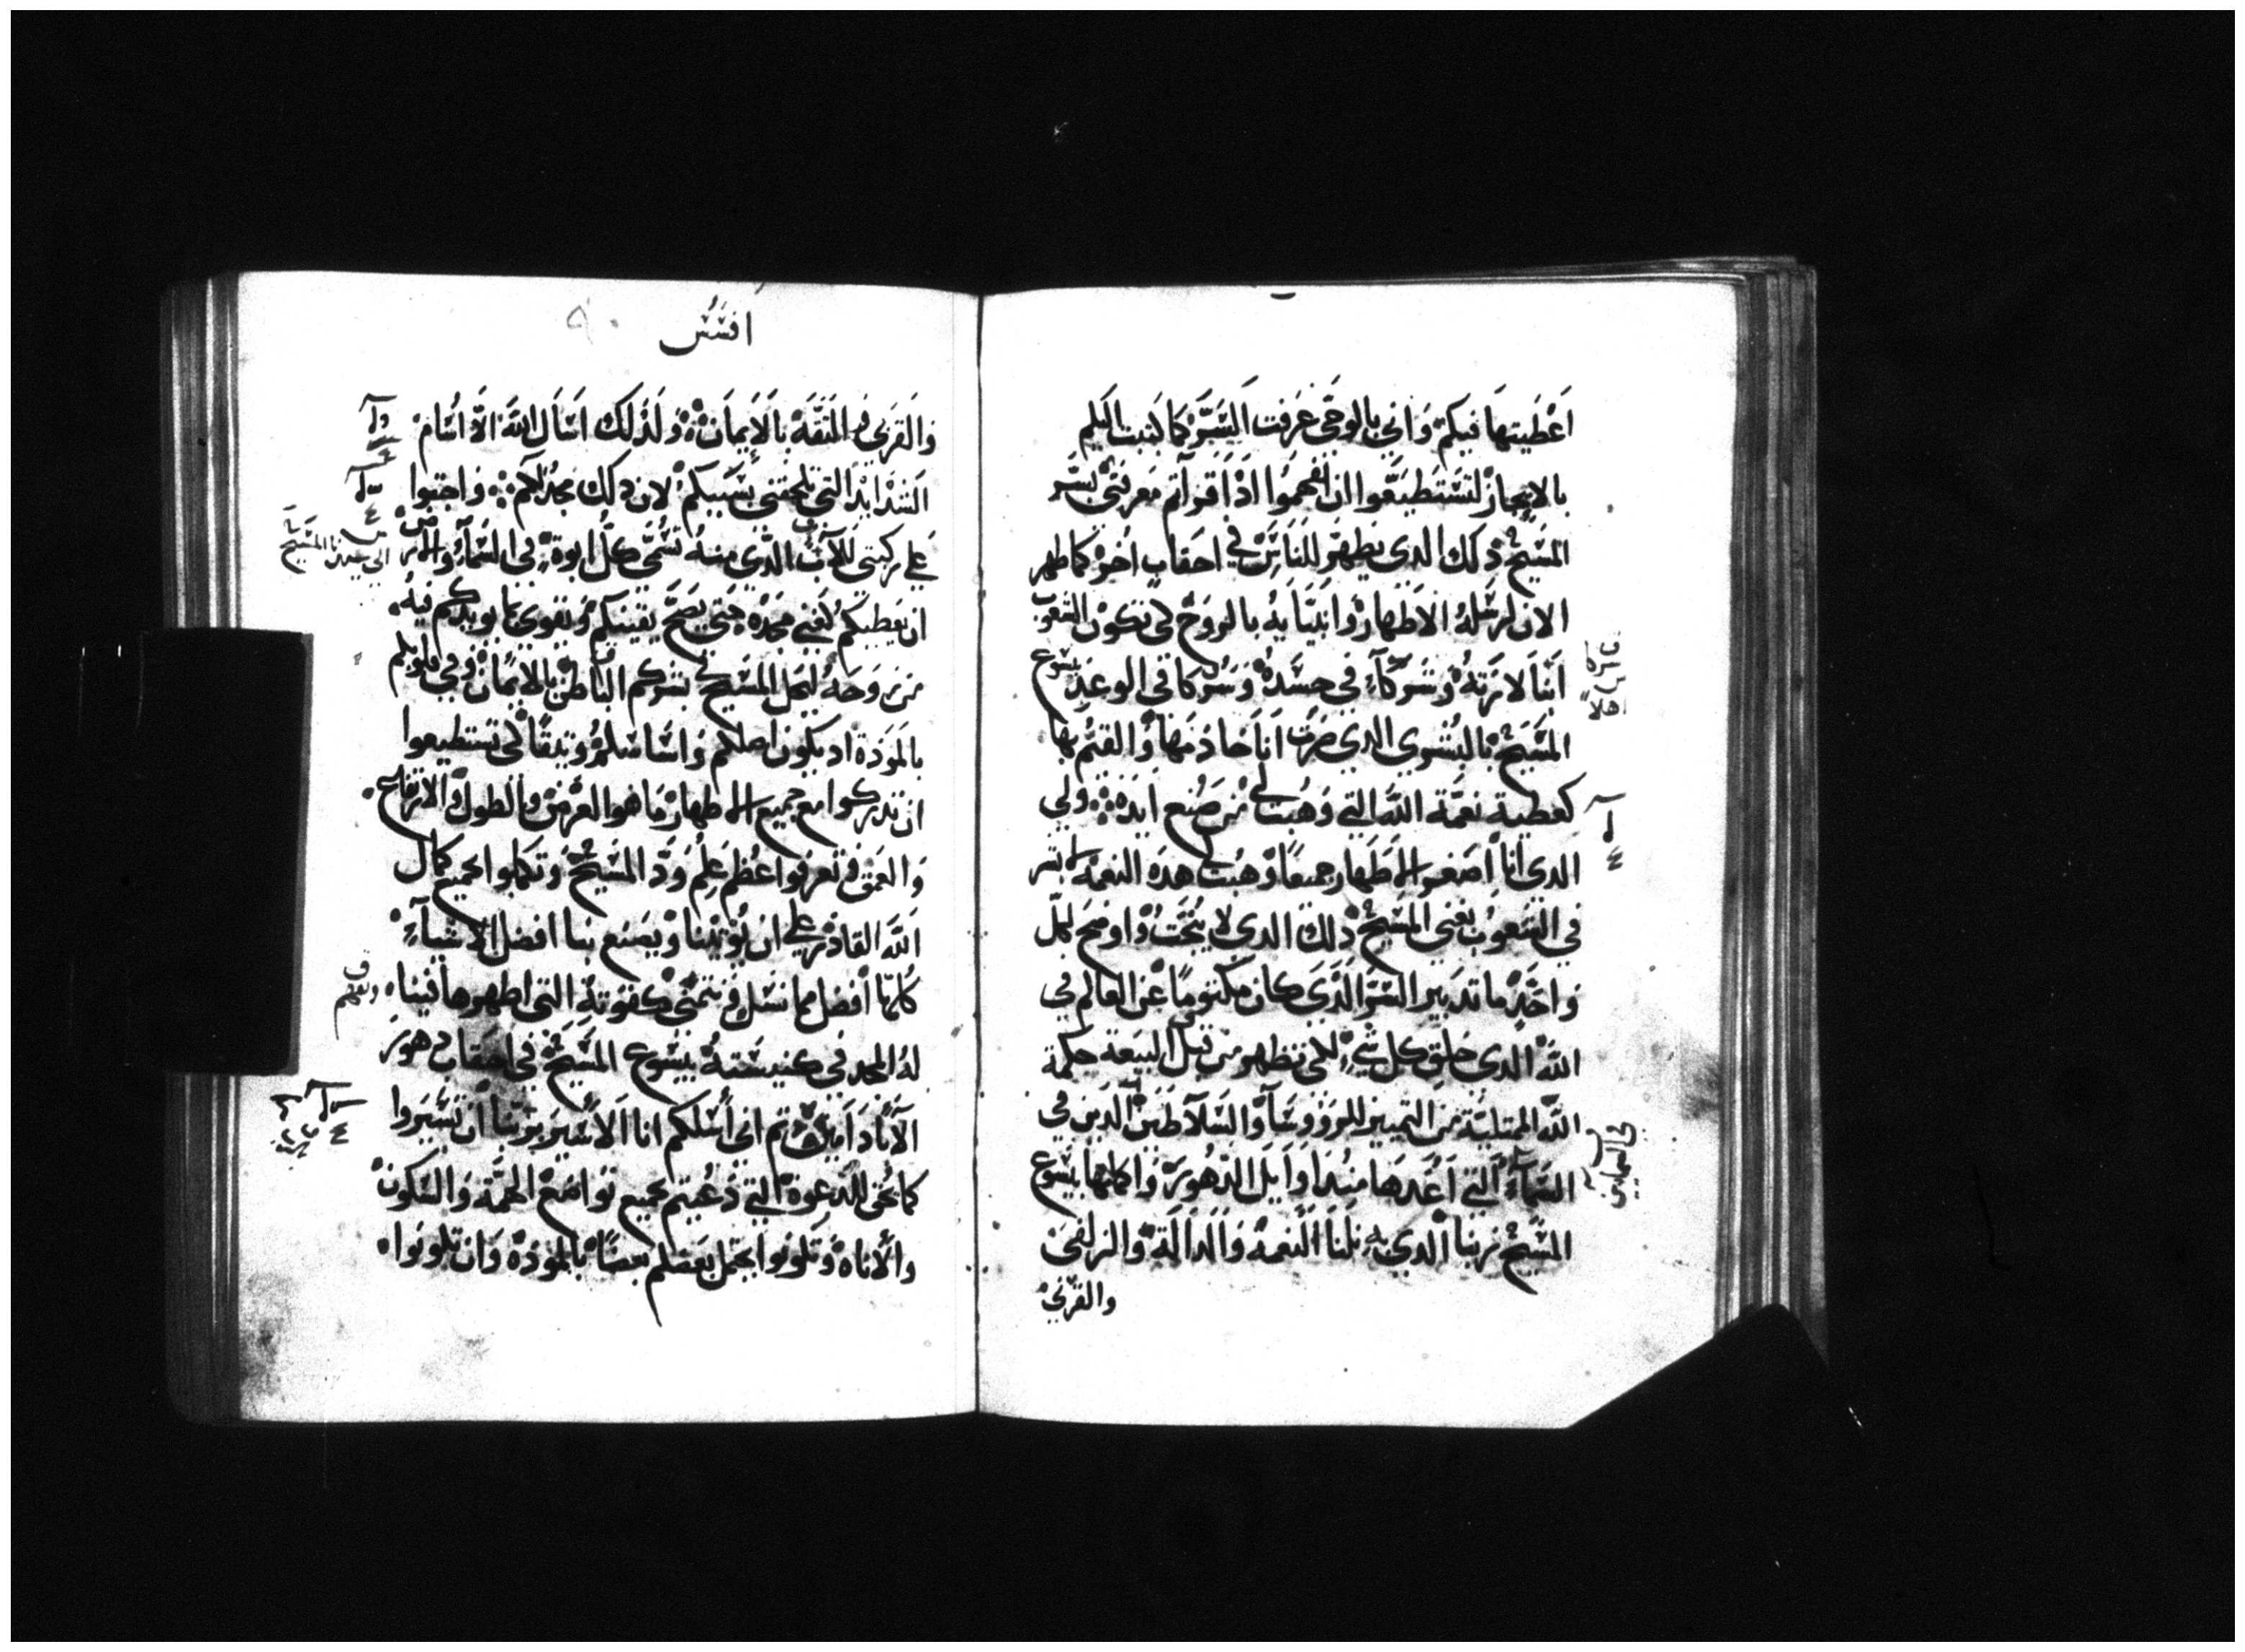 اعطيتها فيكم وانى بالوحى عرفت السر كما كتبت اليكم
بالايجاز لتستطيعوا ان تفهموا اذا قراتم معرفتى بسر
المسيح ذلك الدى يظهر للناس في احقاب اخر كما ظهر
الان لرسله الاطهار وانبيايه بالروح لكى تكون الشعوب
ابنا لارثه وشركآء في جسده وشركا في الوعد يسوع
المسيح بالبشرى الدى صرت انا خادمها والقيم بها
كعطية نعمة الله التى وهبت لى من صنع ايده ولى
الدى انا اصغر الاطهار جميعا وهبت هده النعمة لابشر
في الشعوب بغنى المسيح ذلك الدى لا يبحث واوضح لكل
واحد ما تدبير السر الدى كان مكتوما عن العالم في
الله الدى خلق كل شي لكى تظهر من قبل البيعة حكمة
الله الممتلية من التمييز للرووسآ والسلاطين الدين في
السمآء التى اعدها مند اوايل الدهور واكملها بيسوع
المسيح ربنا الدى به نلنا النعمة والدالة والزلفى
والقربى
افسس ٩٠
والقربى في الثقة بالايمان ولذلك اسال الله الا اسام
الشدايد التى تلحقنى بسببكم لان ذلك مجدكم واجثوا
على ركبتى للآب الذى منه تسمى كل ابوة في السمآء والارض
الى سيدنا المسيح
ان يعطيكم كغنى مجده حتى يصح يقينكم وتقوى بما يويدكم فيه
من روحه ليحل المسيح بشركم الباطن بالايمان وفي قلوبكم
بالمودة اد يكون اصلكم واساسكم وثيقا لكى تستطيعوا
ان تدركوا مع جميع الاطهار ما هو العرض والطول والارتفاع
والعمق وتعرفوا عظم علم ود المسيح وتكملوا بجميع كمال
الله القادر على ان يوتينا ويصنع بنا افضل الاشيآء
كلها افضل مما نسل ونتمنى كقوته التى اظهرها فينا
ونفهم
له المجد في كنيسته بيسوع المسيح في احقاب دهور
الاباد امين ثم انى اسلكم انا الاسير بربنا ان تسيروا
كما يحق للدعوة التى دعيتم بجميع تواضع الهمة والسكون
والاناه وتكونوا يحتمل بعضكم بعضا بالمودة وان تكونوا